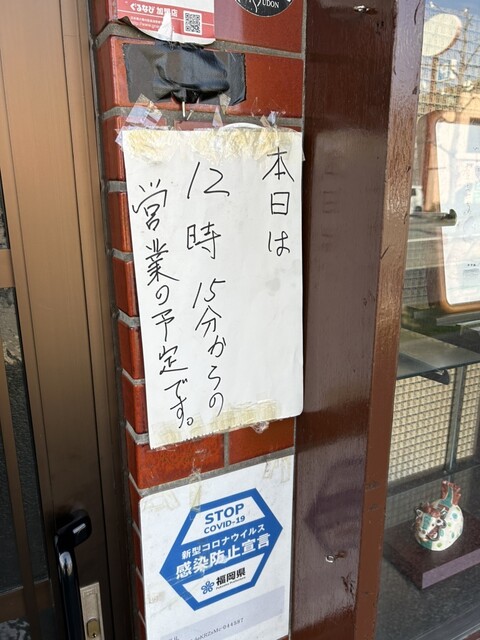 ぐるなび 加盟店
UDON
本日は
12時 15分からの
営業の予定です。
STOP
COVID-19
新型コロナウイルス
感染防止宣言
福岡県